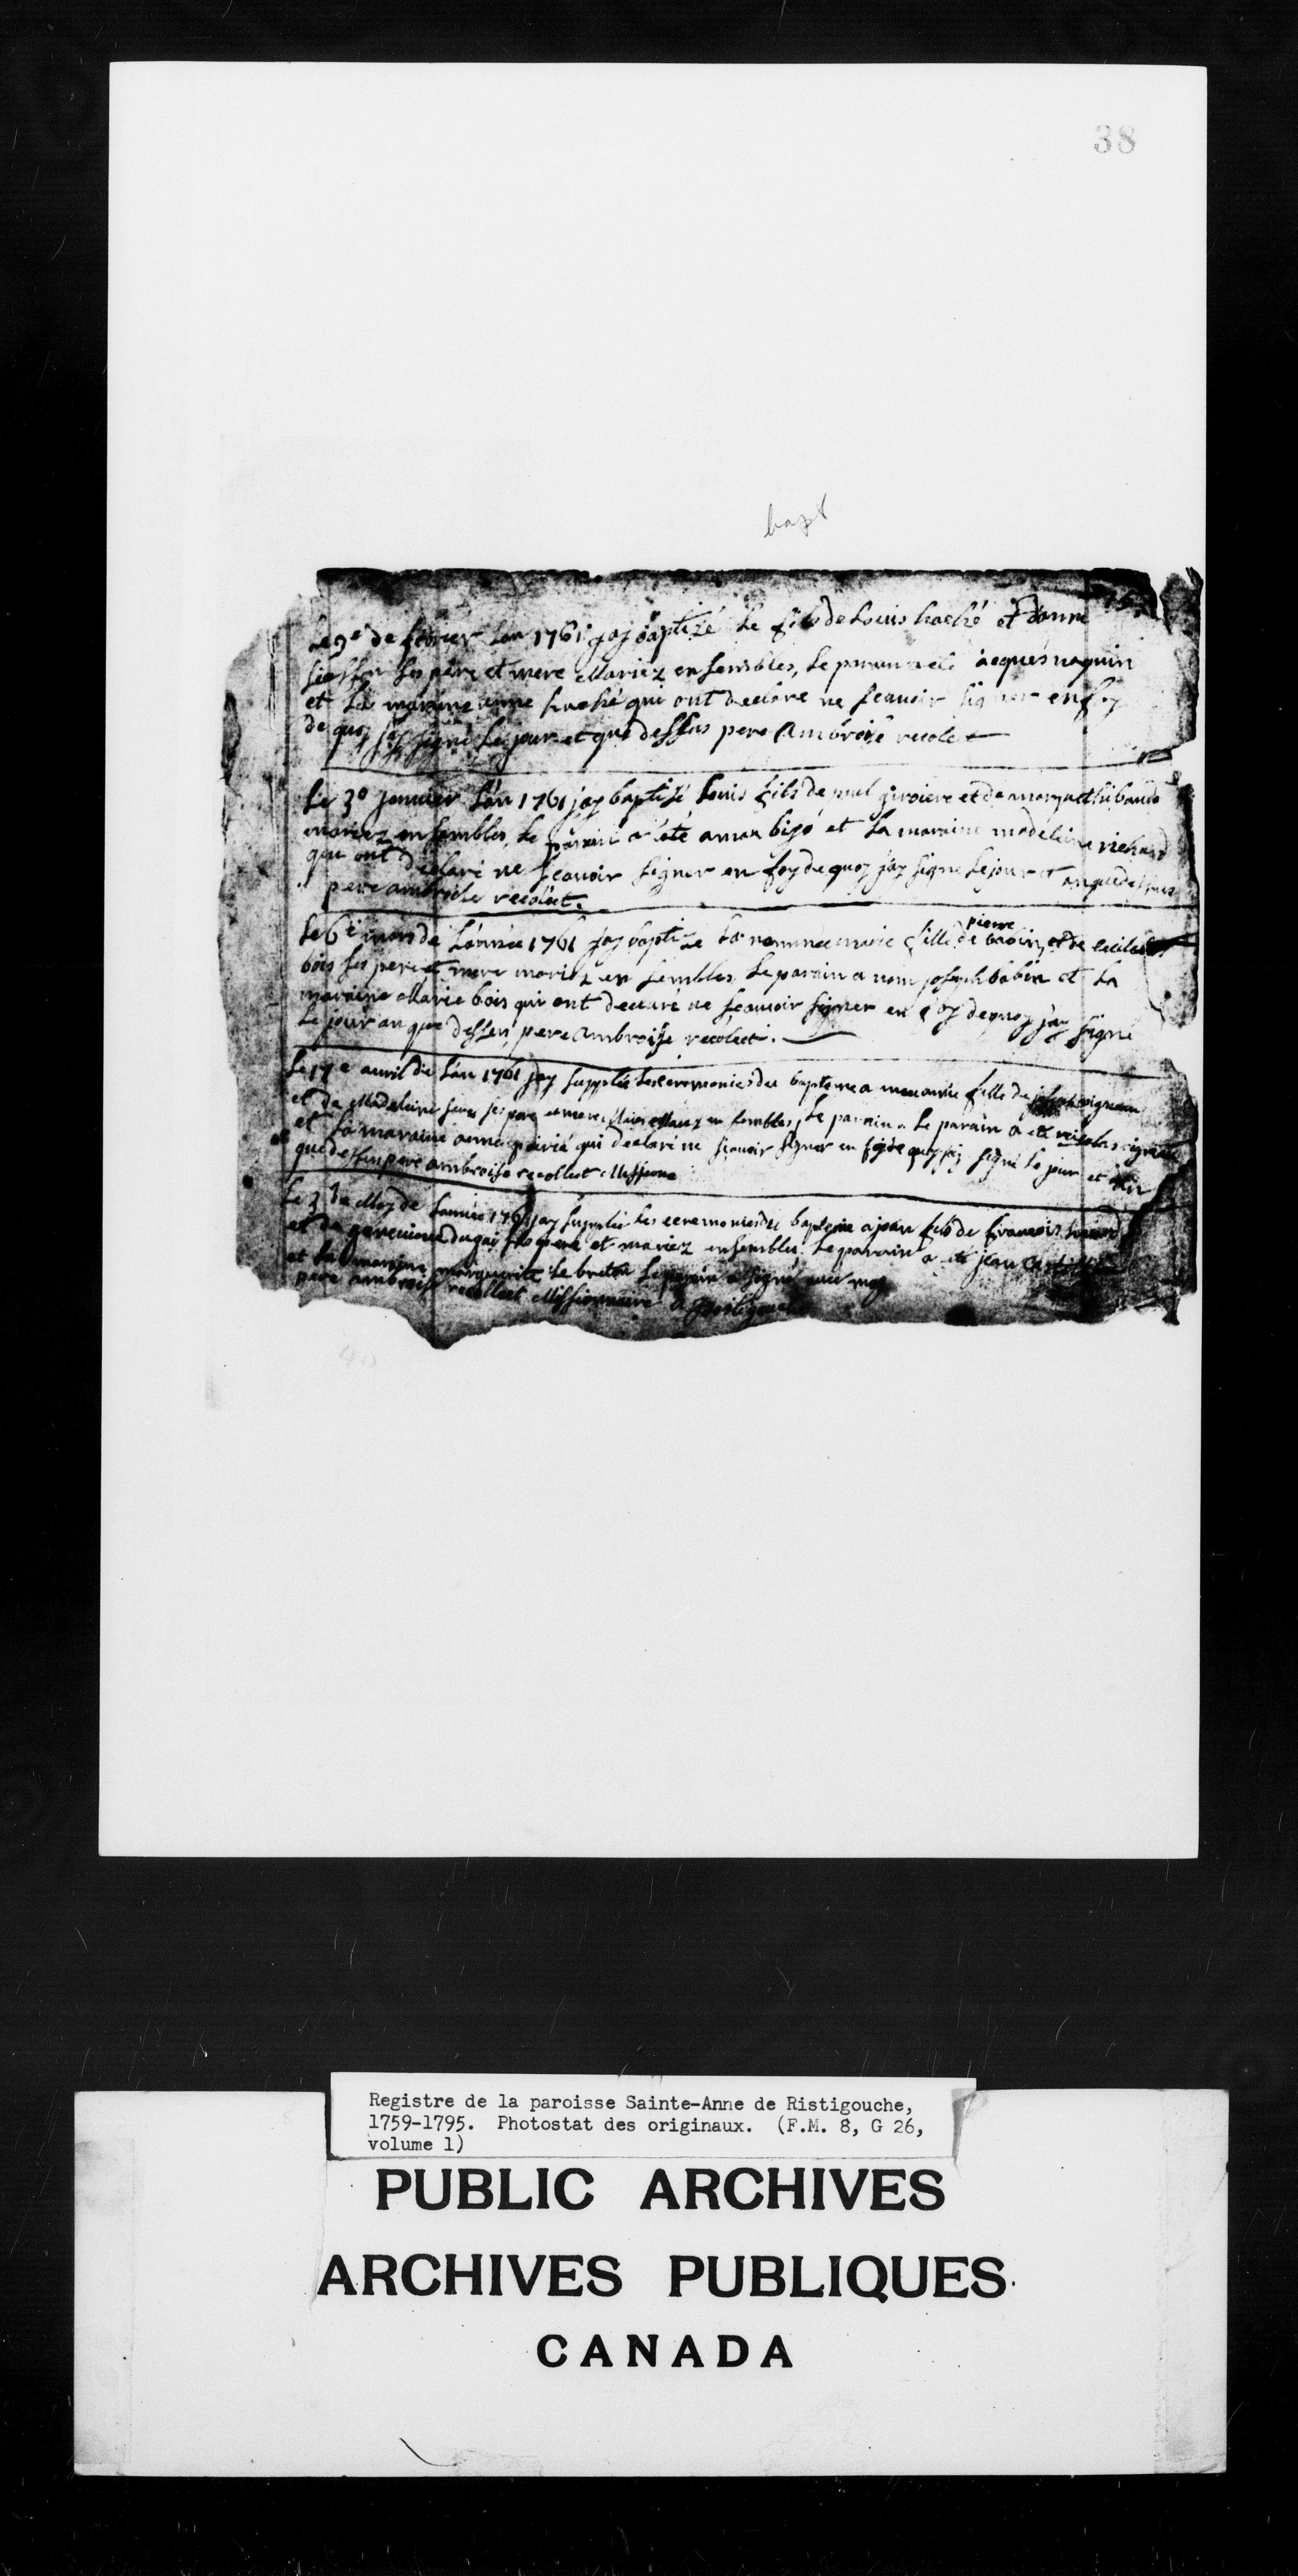 38
bapt
Le 3e de fevrier Lan 1761 jay baptizé Le fils de Louis haché et danne
ses père et mere Mariez ensembles, Le parain a eté jacques naquin
et La maraine anne haché qui ont declaré ne scavoir signer en foy
de quoy jay signé Le jour et que dessus pere Ambroise recolet
Le 30 janvier L'an 1761 jay baptisé Louis fils de paul giroiere et de margt thibaudo
mariez ensembles, Le parain a été aman bijo et La maraine madeleine richard
qui ont declaré ne scavoir signer en foy de quoy jay signé Le jour et an que dessus
pere ambroise recolect.
Le 6e mars de L'année 1761 jay baptize La nommée marie fille de pierre babin et de cecile
bois ses pere et mere mariez en sembles Le parain a nom joseph babin et La
maraine Marie bois qui ont declaré ne scavoir signer en foy de quoy jay signé
Le jour an que dessus pere Ambroise recolect.
Le 17e avril de L'an 1761 jay supplée Les ceremonies du bapteme a fille de
et de Madeleine ses pere et mere en sembles, Le parain a Le parain a eté nicolas
et La maraine anne qui declaré ne scavoir signer en foy de quoy jay signé Le jour et an
que dessus pere ambroise recollect Missione
Le 3 de May de Lannée 1761 jay supplée Les ceremonies du bapteme a jean fils de francois
et de genevieve dugai ses pere et mariez ensembles. Le parain a eté jean
et La maraine marguerite Le breton Le parain a signé avec moy
pere ambroise recollect Missionnaire a Ristigouche
Registre de la paroisse Sainte-Anne de Ristigouche,
1759-1795. Photostat des originaux. (F.M. 8, G 26,
volume 1)
PUBLIC ARCHIVES
ARCHIVES PUBLIQUES
CANADA